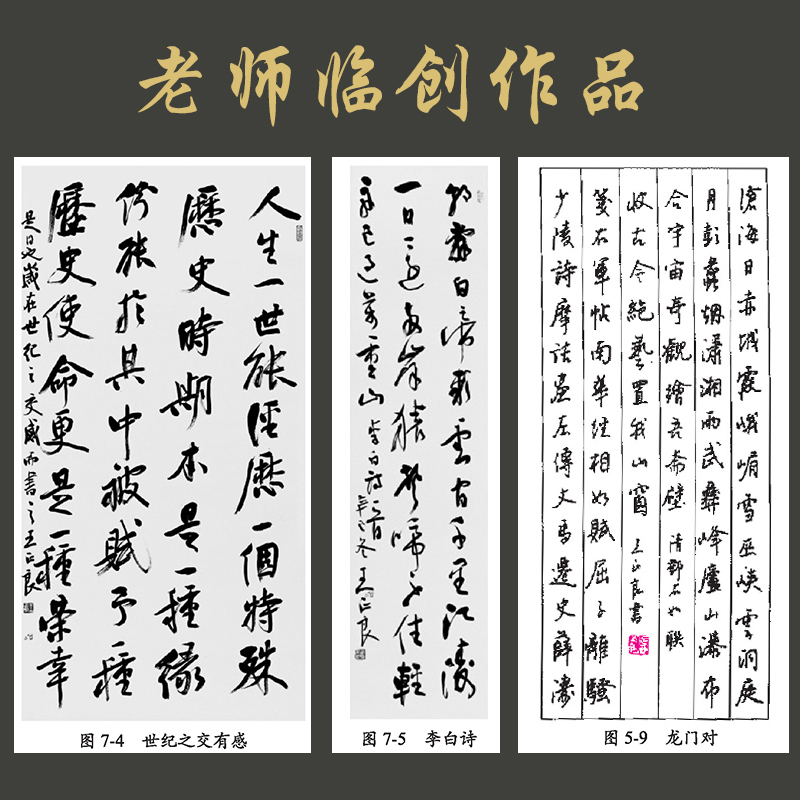 老师临创作品
人生一世能經歷一個特殊
歷史時期本是一種緣
份能於其中被賦予一種
歷史使命更是一種榮幸
是日也歲在世紀之交感而書之王正良
图 7-4 世纪之交有感
朝辭白帝彩雲间千里江陵
一日還兩岸猿聲啼不住輕
舟已过萬重山 李白诗一首 辛巳冬 王正良
图 7-5 李白诗
滄海日赤城霞峨嵋雪巫峽雲洞庭
月彭蠡烟瀟湘雨武彝峰廬山瀑布
合宇宙奇觀繪吾齋壁 清鄧石如联
少陵詩摩詰畫左傳文馬遷史薛濤
箋右軍帖南華經相如賦屈子離騷
收古今絕藝置我山窗 王正良書
图 5-9 龙门对